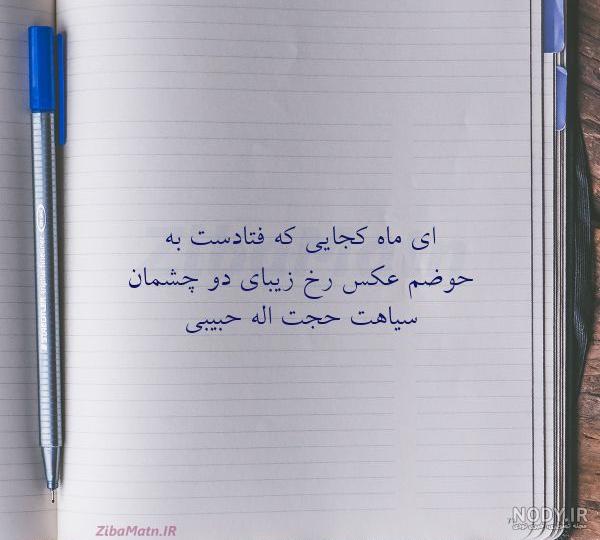 ای ماه کجایی که فتادست به
حوضم عکس رخ زیبای دو چشمان
سیاهت حجت اله حبیبی
ZibaMatn.IR
NODY.IR